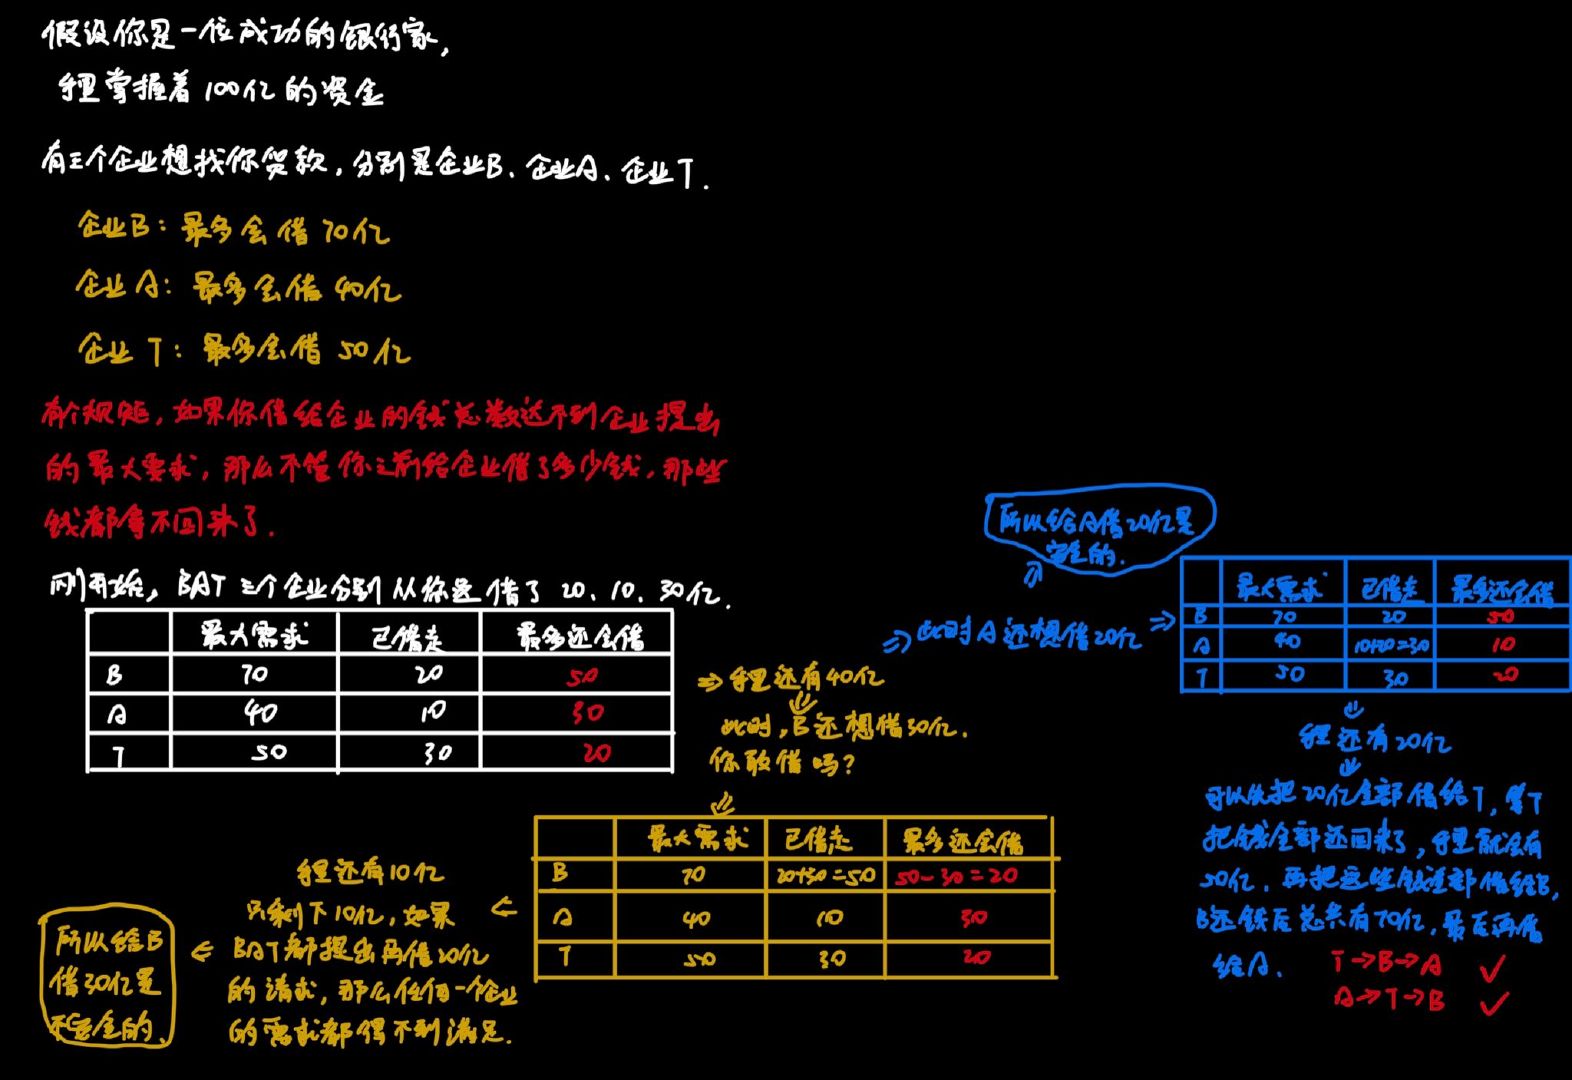 假设你是一位成功的银行家,
手里掌握着100亿的资金
有三个企业想找你贷款,分别是企业B、企业A、企业T.
企业B:最多会借70亿
企业A:最多会借40亿
企业T:最多会借50亿
有个规矩,如果你借给企业的钱总数达不到企业提出
的最大需求,那么不管你之前给企业借了多少钱,那些
钱都拿不回来了.
刚开始,BAT三个企业分别从你这借了20、10、30亿.
最大需求 已借走 最多还会借
B 70 20 50
A 40 10 30
T 50 30 20
⇒手里还有40亿
⇓
此时,B还想借30亿.
你敢借吗?
⇓
最大需求 已借走 最多还会借
B 70 20+30=50 50-30=20
A 40 10 30
T 50 30 20
手里还有10亿
只剩下10亿,如果 ⇐
BAT都提出再借20亿
的请求,那么任何一个企业
的需求都得不到满足.
⇐
所以给B
借30亿是
不安全的.
⇒此时A还想借20亿⇒
所以给A借20亿是
安全的.
⇗
最大需求 已借走 最多还会借
B 70 20 50
A 40 10+20=30 10
T 50 30 20
⇓
手里还有20亿
⇓
可以先把20亿全部借给T,等T
把钱全部还回来了,手里就会有
50亿,再把这些钱全部借给B,
B还钱后总共有70亿,最后再借
给A.
T→B→A ✓
A→T→B ✓